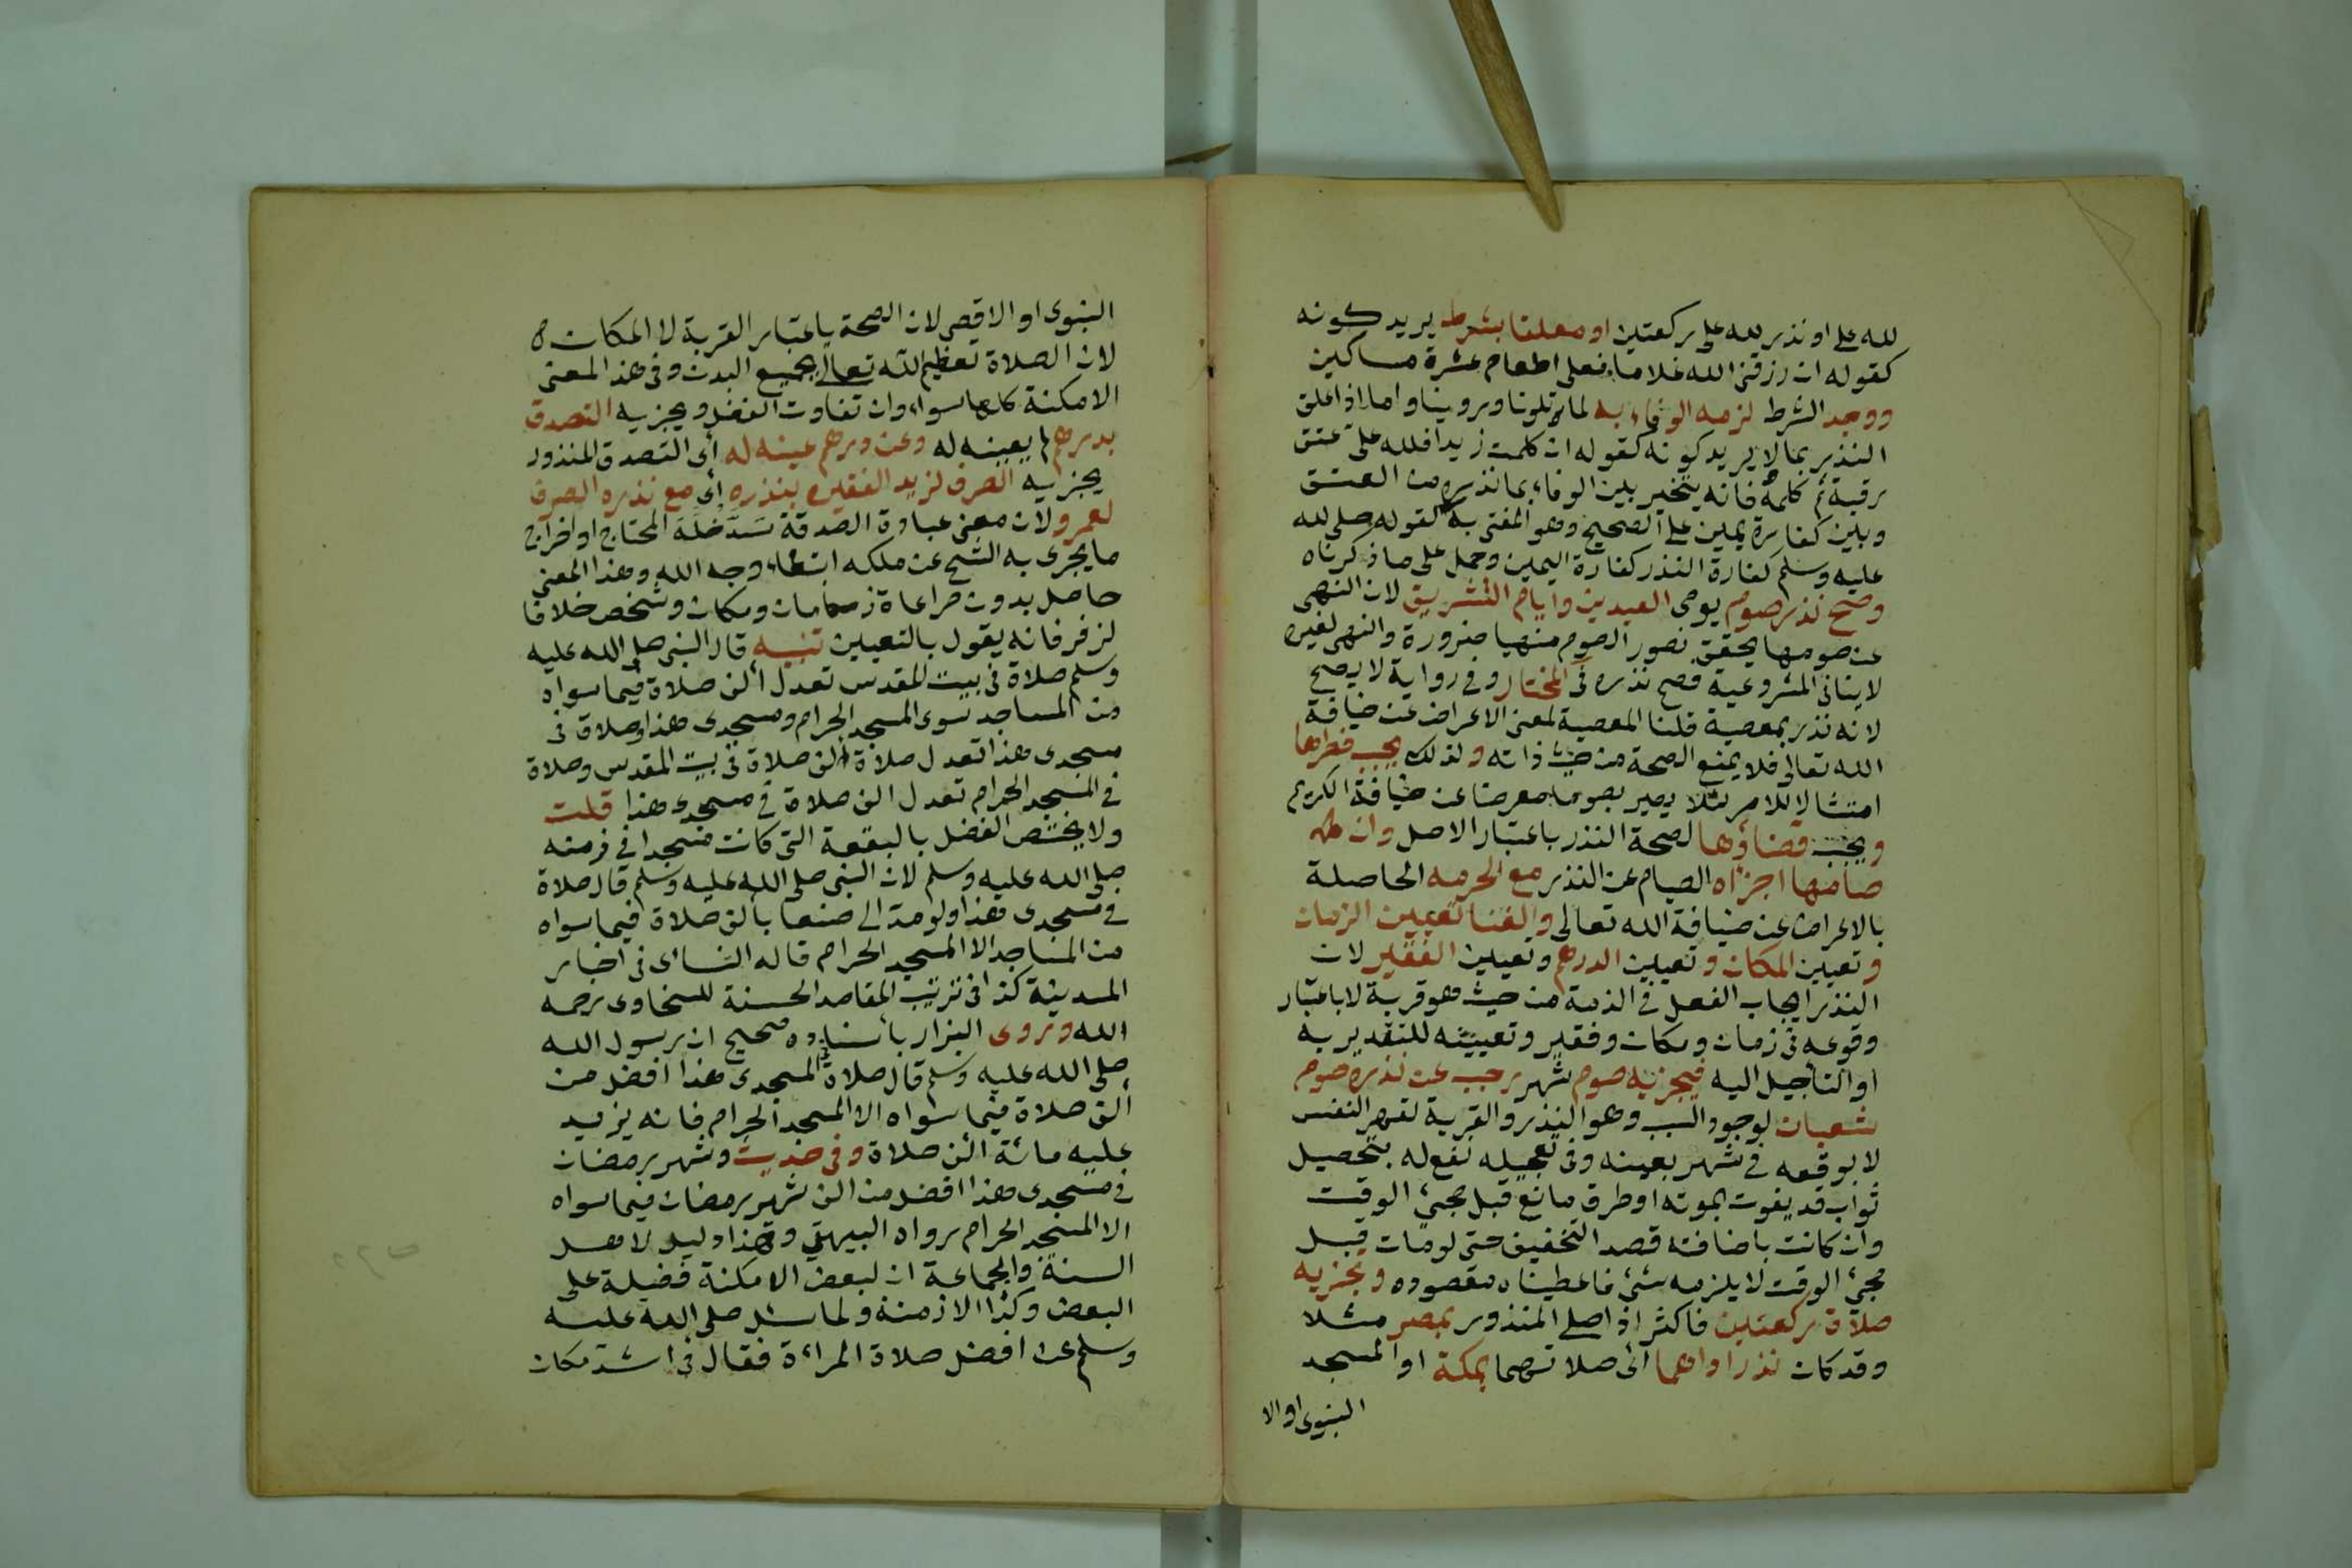 لله علي او نذر لله علي ركعتين او معلقا بشرط يريد كونه
كقوله ان رزقني الله غلاما فعلي اطعام عشرة مساكين
ووجد الشرط لزمه الوفاء به لما تلونا وروينا واما اذا علق
النذر بما لا يريد كونه كقوله ان كلمت زيدا فلله علي عتق
رقبة ثم كلمه فانه يتخير بين الوفاء بما نذره من العتق
وبين كفارة يمين على الصحيح وهو المفتى به لقوله صلى الله
عليه وسلم كفارة النذر كفارة اليمين وحمل على ما ذكرناه
وصح نذر صوم يومى العيدين وايام التشريق لان النهى
عن صومها يحقق تصور الصوم منهيا ضرورة والنهى لغيره
لا ينافى المشروعية فصح نذره فى المختار وفى رواية لا يصح
لانه نذر بمعصية قلنا المعصية لمعنى الاعراض عن ضيافة
الله تعالى فلا يمنع الصحة من حيث ذاته ولذلك يجب فطرها
امتثالا للامر لئلا يصير بصومها معرضا عن ضيافة الكريم
ويجب قضاؤها لصحة النذر باعتبار الاصل وان
صامها اجزاه الصيام عن النذر مع الحرمه الحاصلة
بالاعراض عن ضيافة الله تعالى والغينا تعيين الزمان
وتعيين المكان وتعيين الدرهم وتعيين الفقير لان
النذر ايجاب الفعل في الذمة من حيث هو قربة لا باعتبار
وقوعه فى زمان ومكان وفقير وتعيينه للتقدير به
او التأجيل اليه فيجزيه صوم شهر رجب عن نذره صوم
شعبان لوجود السبب وهو النذر والقربة لقهر النفس
لا بوقعه فى شهر بعينه وفى تعجيله نفع له بتحصيل
ثواب قد يفوت بموته او طرق مانع قبل مجئ الوقت
وان كانت باضافته قصد التخفيف حتى لو مات قبل
مجئ الوقت لا يلزمه شئ فاعطيناه مقصوده وتجزيه
صلاة ركعتين فاكثر اذا صلى المنذور بمصر مثلا
وقد كان نذر اداهما اى صلاتهما بمكة او المسجد
النبوى او الا
النبوى او الاقصى لان الصحة باعتبار القربة لا المكان
لان الصلاة تعظيم الله تعالى بجميع البدن وفى هذا المعنى
الامكنة كلها سواء وان تفاوت الفضل ويجزيه التصدق
بدرهم لم يعينه له وعن درهم عينه له أى التصدق المنذور
يجزيه الصرف لزيد الفقير بنذره أى مع نذره الصرف
لعمرو لان معنى عبادة الصدقة سَدّ خَلَّة المحتاج او اخراج
ما يجرى به الشح عن ملكه ابتغاء وجه الله وهذا المعنى
حاصل بدون مراعاة زمان ومكان وشخص خلافا
لزفر فانه يقول بالتعيين تنبيه قال النبى صلى الله عليه
وسلم صلاة فى بيت المقدس تعدل ألف صلاة فيما سواه
من المساجد سوى المسجد الحرام ومسجدى هذا وصلاة فى
مسجدى هذا تعدل صلاة الف صلاة فى بيت المقدس وصلاة
فى المسجد الحرام تعدل الف صلاة فى مسجدى هذا قلت
ولا يختص الفضل بالبقعة التى كانت مسجدا فى زمنه
صلى الله عليه وسلم لان النبى صلى الله عليه وسلم قال صلاة
فى مسجدى هذا ولو مد الى صنعا بألف صلاة فيما سواه
من المساجد الا المسجد الحرام قاله فى اخبار
المدينة كذا فى ترتيب المقاصد الحسنة للسخاوى رحمه
الله وروى البزار بأسناده صحيح ان رسول الله
صلى الله عليه وسلم قال صلاة فى المسجدى هذا افضل من
ألف صلاة فيما سواه الا المسجد الحرام فانه يزيد
عليه مائة الف صلاة وفى حديث وشهر رمضان
فى مسجدى هذا افضل من الف شهر رمضان فيما سواه
الا المسجد الحرام رواه البيهقى وهذا دليل لاهل
السنة والجماعة ان لبعض الامكنة فضيلة على
البعض وكذا الازمنة ولما سئل صلى الله عليه
وسلم عن افضل صلاة المراءة فقال فى اشد مكان